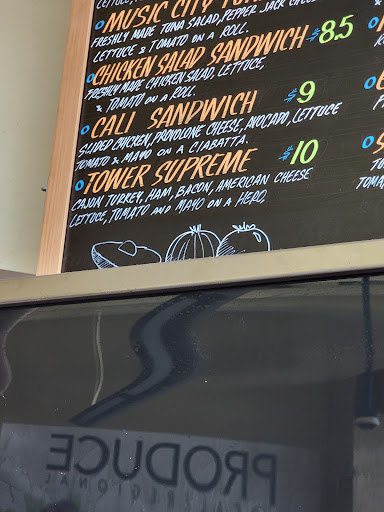 LETTUCE,
MUSIC CITY TUNA
FRESHLY MADE TUNA SALAD, PEPPER JACK CHEESE
LETTUCE & TOMATO ON A ROLL.
CHICKEN SALAD SANDWICH $8.5
FRESHLY MADE CHICKEN SALAD, LETTUCE,
& TOMATO ON A ROLL.
CALI SANDWICH $9
SLICED CHICKEN, PROVOLONE CHEESE, AVOCADO, LETTUCE
TOMATO & MAYO ON A CIABATTA.
TOWER SUPREME $10
CAJUN TURKEY, HAM, BACON, AMERICAN CHEESE
LETTUCE, TOMATO AND MAYO ON A HERO.
PRODUCE
REGIONAL